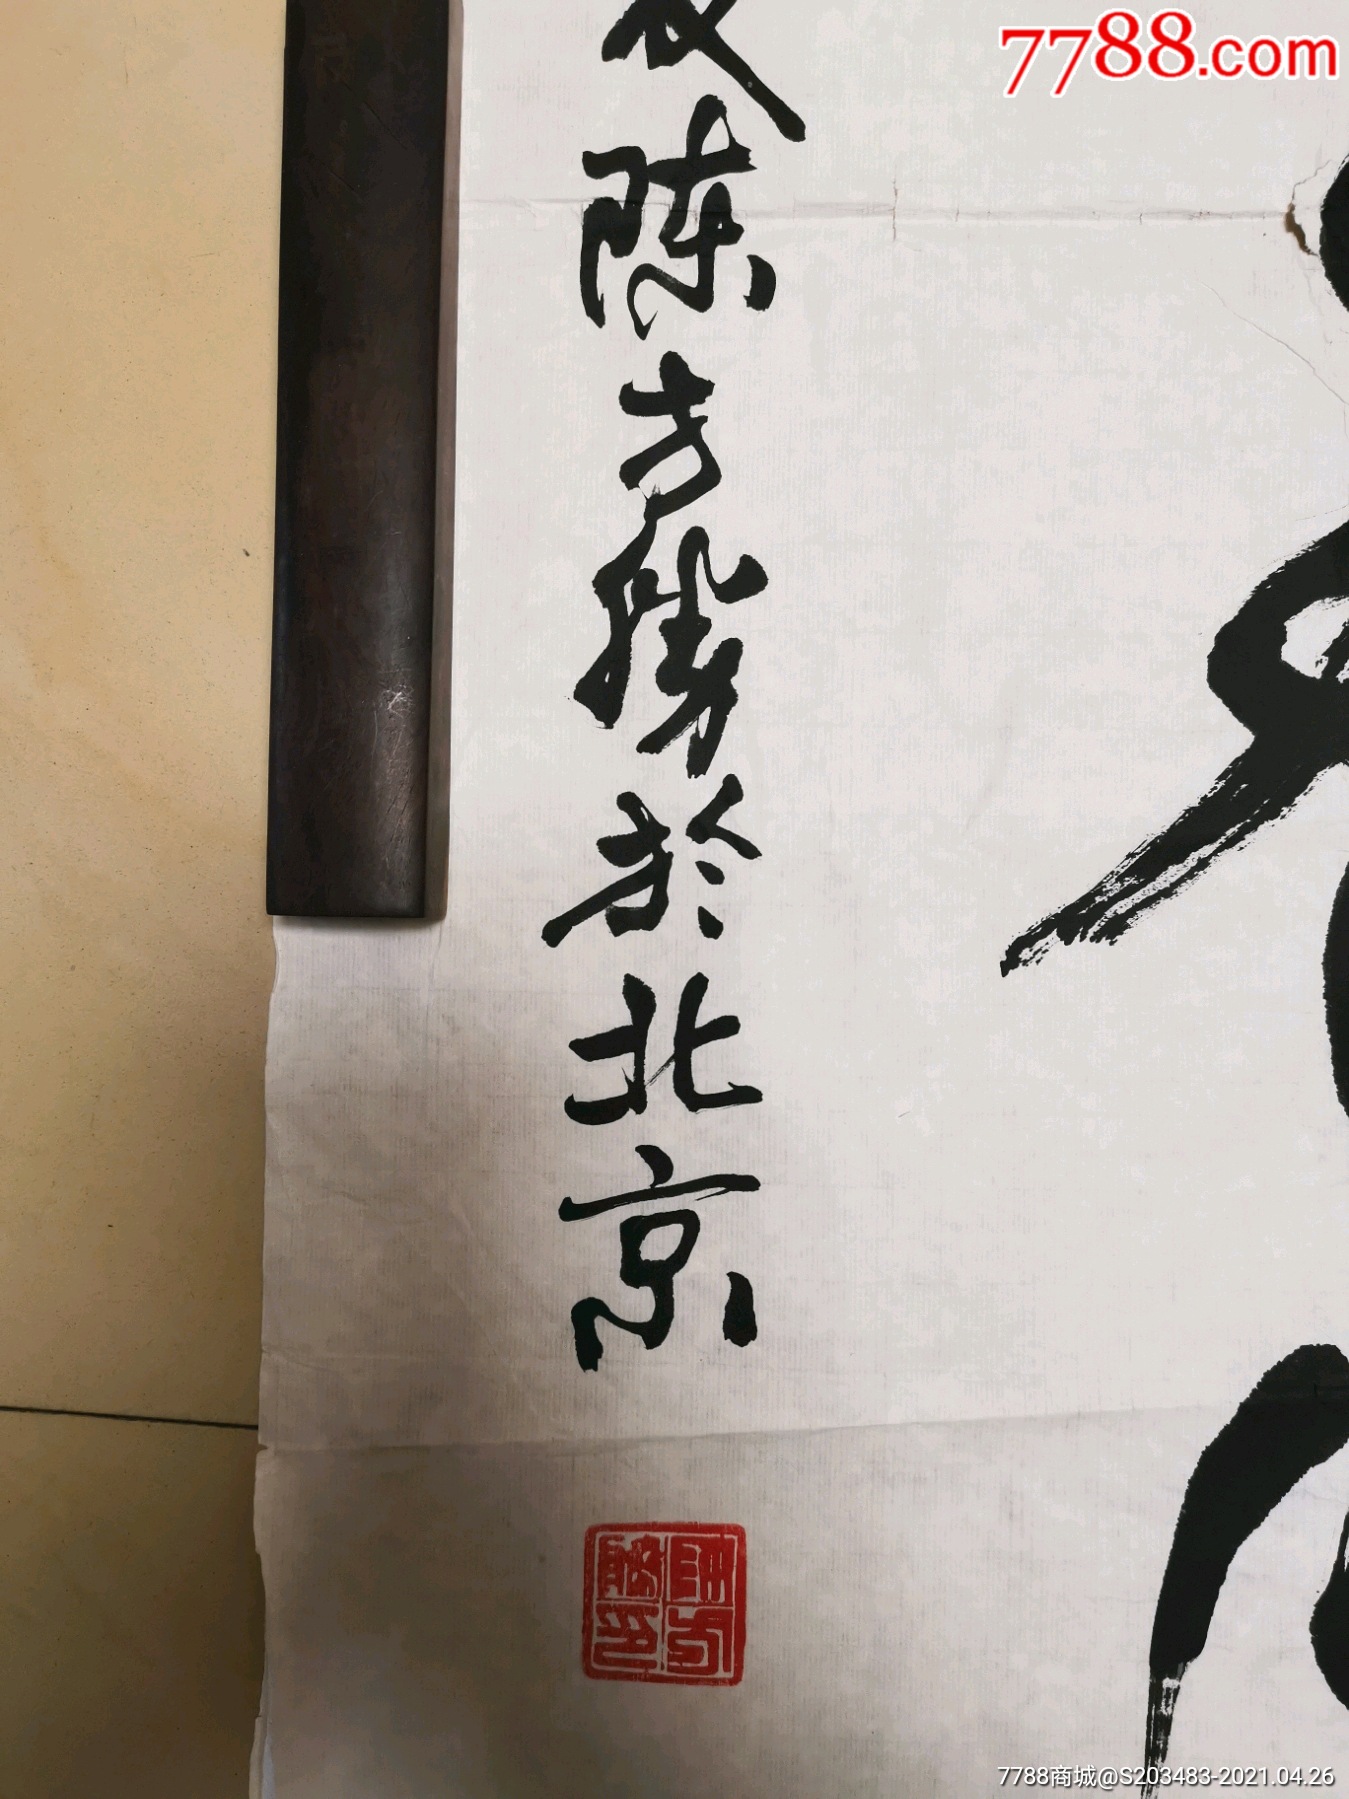 7788.com
陈方勝於北京
7788商城@S203483-2021.04.26